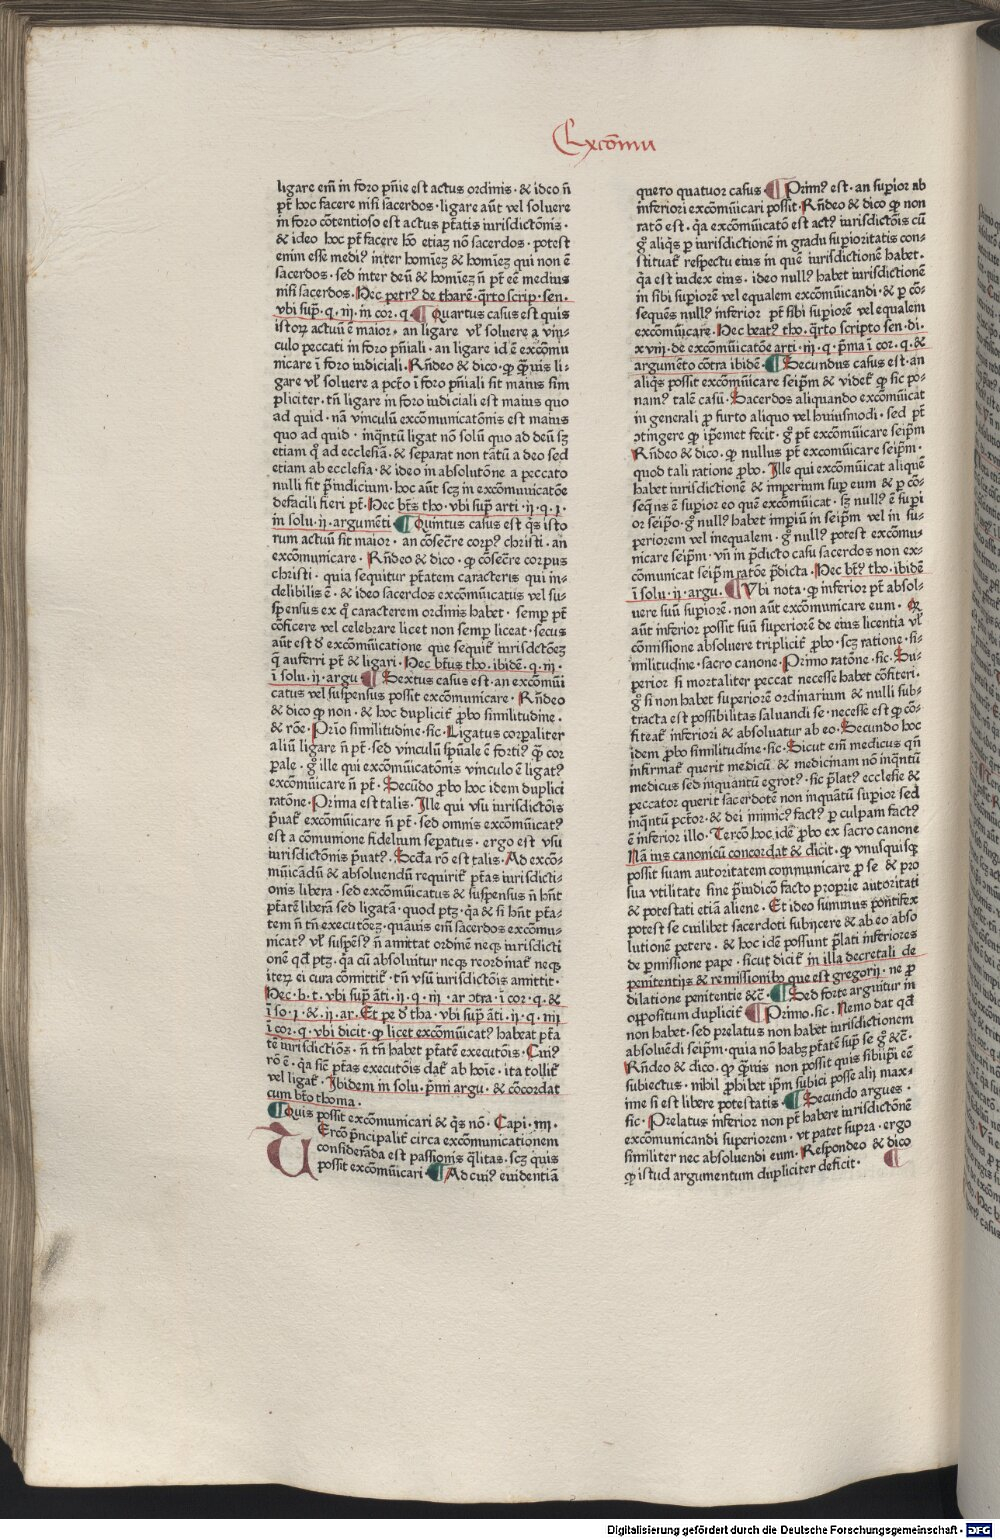 Excōmu
ligare em̄ in foro pn̄ie est actus ordinis · & ideo n̄
pt̄ hoc facere nisi sacerdos · ligare aūt vel soluere
in foro cōtentioso est actus ptātis iurisdictōnis ·
& ideo hoc pt̄ facere hō etiaz nō sacerdos · potest
enim esse mediꝰ inter hominez & hominez qui non ē
sacerdos · sed inter deū & hominez n̄ pt̄ eē medius
nisi sacerdos · Hec petrꝰ de tharē · qrto scrip · sen ·
vbi sup̄ · q · iij · in cor · q · ¶ Quartus casus est quis
istoꝝ actuū ē maior · an ligare vl̄ soluere a vin-
culo peccati in foro pn̄iali · an ligare id ē excōmu
nicare ī foro iudiciali · Rn̄deo & dico · ꝙ q̄uis li-
gare vl̄ soluere a pctō ī foro pn̄iali sit maius sim
pliciter · tn̄ ligare in foro iudiciali est maius quo
ad quid · nā vinculū excōmunicatōnis est maius
quo ad quid · inq̄ntū ligat nō solū quo ad deū sꝫ
etiam qͦ ad ecclesiā · & separat non tātū a deo sed
etiam ab ecclesia · & ideo in absolutōne a peccato
nulli fit p̄iudicium · hoc aūt scꝫ in excōmunicatōe
defacili fieri pt̄ · Hec bt̄s tho · vbi sup̄ arti · ij · q · i ·
in solu · ij · argumēti ¶ Quintus casus est q̄s isto
rum actuū sit maior · an cōsecr̄e corpꝰ christi · an
excōmunicare · Rn̄deo & dico · ꝙ cōsecr̄e corpus
christi · quia sequitur ptātem caracteris qui in-
delibilis ē · & ideo sacerdos excōmūicatus vel su-
spensus ex qͦ caracterem ordinis habet · semp̄ pt̄
cōficere vel celebrare licet non semp̄ liceat · secus
aūt est d̄ excōmūicatione que sequit̄ iurisdctōeꝫ
q̄ auferri pt̄ & ligari · Hec bt̄us tho · ibidē · q · iij ·
ī solu · ij · argu ¶ Sextus casus est · an excōmūi
catus vel suspensus possit excōmunicare · Rn̄deo
& dico ꝙ non · & hoc duplicit̄ ꝓbo similitudine ·
& rōne · Prīo similitudine · sic · Ligatus corꝑaliter
aliū ligare n̄ pt̄ · sed vinculū spūale ē fortiꝰ q̄ cor
ꝑale · gͦ ille qui excōmūicatōnis vinculo ē ligatꝰ
excōmūicare n̄ pt̄ · Secūdo ꝓbo hoc idem duplici
ratōne · Prima est talis · Ille qui vsu iurisdictōis
p̄uat̄ excōmūicare n̄ pt̄ · sed omnis excōmūicatꝰ
est a cōmunione fidelium sep̄atus · ergo est vsu
iurisdictōnis p̄uatꝰ · Scd̄a rō est talis · Ad excō-
mūicādū & absoluendū requirit̄ ptās iurisdicti-
onis libera · sed excōmūicatus & suspensus n̄ hn̄t
ptātē liberā sed ligatā · quod ptꝫ · qa & si hn̄t ptā-
tem n̄ tn̄ executōeꝫ · quāuis em̄ sacerdos excōmu-
nicatꝰ vl̄ suspēsꝰ n̄ amittat ordinē neqꝫ iurisdicti
onē qd̄ ptꝫ · qa cū absoluitur neqꝫ reordinat̄ neqꝫ
iteꝝ ei cura cōmittit̄ · tn̄ vsū iurisdictōis amittit ·
Hec · b · t · vbi sup̄ āti · ij · q · iij · ar ↄtra · ī cor · q · &
ī so · i · & · ij · ar · Et pe d̄ tha · vbi sup̄ āti · ij · q · iiij
ī cor · q · vbi dicit · ꝙ licet excōmūicatꝰ habeat ptā
tē iurisdictiōs · n̄ tn̄ habet ptātē executōis · Cuiꝰ
rō ē · qa sic̄ ptās executōis dat̄ ab hoīe · ita tollit̄
vel ligat̄ · Ibidem in solu · pm̄i argu · & cōcordat
cum bt̄o thoma ·
¶ Quis possit excōmunicari & q̄s nō · Capi · iiij ·
TErcō pn̄cipalit̄ circa excōmunicationem
considerāda est passionis q̄litas · scꝫ quis
possit excōmūicari · ¶ Ad cuiꝰ euidentiā
quero quatuor casus ¶ Primꝰ est · an suꝑior ab
inferiori excōmūicari possit · Rn̄deo & dico ꝙ non
ratō est · qa excōmunicatō est actꝰ iurisdictōis cū
gͦ aliqs ꝑ iurisdictionē in gradu suꝑioritatis con-
stituat̄ respectu eius in quē iurisdictionē habet ·
qa est iudex eius · ideo nullꝰ habet iurisdictionē
in sibi suꝑiorē vel equalem excōmūicandi · & ꝑ cō-
sequēs nullꝰ inferior pt̄ sibi suꝑiorē vel equalem
excōmūicare · Hec beatꝰ tho · qrto scripto sen · di ·
xviij · de excōmūicatōe arti · iij · q · pm̄a ī cor · q · &
argumēto cōtra ibidē · ¶ Secundus casus est · an
aliqs possit excōmūicare seip̄m & videt̄ ꝙ sic po-
namꝰ talē casū · Sacerdos aliquando excōmūicat
in generali ꝓ furto aliquo vel huiusmodi · sed pt̄
ↄtingere ꝙ ip̄emet fecit · gͦ pt̄ excōmūicare seip̄m
Rn̄deo & dico · ꝙ nullus pt̄ excōmūicare seip̄m ·
quod tali ratione ꝓbo · Ille qui excōmūicat aliquē
habet iurisdictionē & imperium suꝑ eum & ꝑ cō-
seqn̄s ē suꝑior eo quē excōmūicat · sꝫ nullꝰ ē suꝑi
or seip̄o · gͦ nullꝰ habet imꝑiū in seip̄m vel in su-
periorem vel inequalem · gͦ nullꝰ potest excōmu-
nicare seip̄m · vn̄ in p̄dicto casu sacerdos non ex-
cōmunicat seip̄m ratōe p̄dicta · Hec bt̄ꝰ tho · ibidē
ī solu · ij · argu · ¶ Vbi nota · ꝙ inferior pt̄ absol-
uere suū suꝑiorē · non aūt excōmunicare eum · Qͣ
aūt inferior possit suū suꝑiorē de eius licentia vl̄
cōmissione absoluere triplicit̄ ꝓbo · scꝫ ratione · si-
militudine · sacro canone · Primo ratōne · sic · Su-
perior si mortaliter peccat necesse habet cōfiteri ·
gͦ si non habet suꝑiorē ordinarium & nulli sub-
tracta est possibilitas saluandi se · necesse est ꝙ cō-
fiteat̄ inferiori & absoluatur ab eo · Secundo hoc
idem ꝓbo similitudine · sic · Sicut em̄ medicus qn̄
infirmat̄ querit medicū & medicinam nō inq̄ntū
medicus sed inquantū egrotꝰ · sic p̄latꝰ ecclesie &
peccator querit sacerdotē non inquātū suꝑior sed
inq̄ntū pctōr · & dei inimicꝰ factꝰ ꝑ culpam factꝰ
ē inferior illo · Tercō hoc idē ꝓbo ex sacro canone
Nā ius canonicū concordat & dicit · ꝙ vnusquisqꝫ
possit suam autoritatem communicare ꝓ se & pro
sua vtilitate sine p̄iudicō facto proprie autoritati
& potestati etiā aliene · Et ideo summus pontifex
potest se cuilibet sacerdoti subijcere & ab eo abso
lutionē petere · & hoc idē possunt p̄lati inferiores
de ꝑmissione pape · sicut dicit̄ in illa decretali de
penitentijs & remissionibꝰ que est gregorij · ne ꝑ
dilatione penitentie &c̄ · ¶ Sed forte arguitur in
oppositum duplicit̄ ¶ Primo · sic · Nemo dat qd̄
non habet · sed prelatus non habet iurisdictionem
absoluēdi seip̄m · quia nō habꝫ ptātē sup̄ se gͦ &c̄ ·
Rn̄deo & dico · ꝙ q̄uis non possit quis sibiip̄i eē
subiectus · nihil ꝓhibet ip̄m subici posse alij max-
ime si est libere potestatis · ¶ Secundo argues ·
sic · Prelatus inferior non pt̄ habere iurisdictōnē
excōmunicandi superiorem · vt patet supra · ergo
similiter nec absoluendi eum · Respondeo & dico
ꝙ istud argumentum dupliciter deficit · ¶
Digitalisierung gefördert durch die Deutsche Forschungsgemeinschaft - DFG